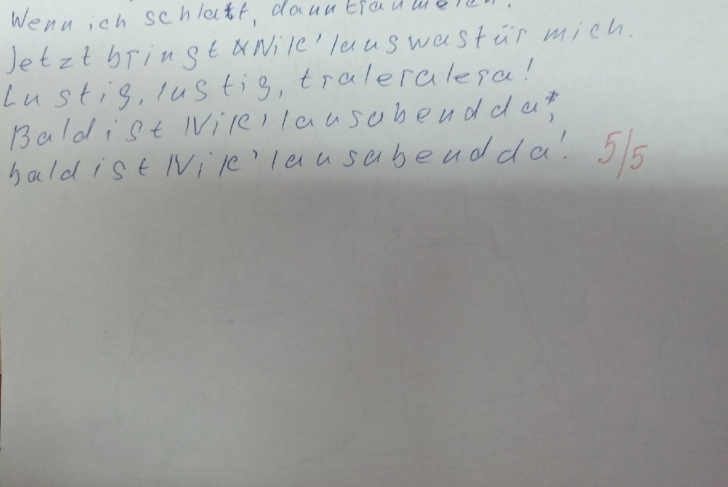 Wenn ich schlaf, dann träum ich.
Jetzt bringt Nik'laus was für mich.
Lustig, lustig, traleralera!
Bald ist Nik'lausabend da,
bald ist Nik'lausabend da! 5/5